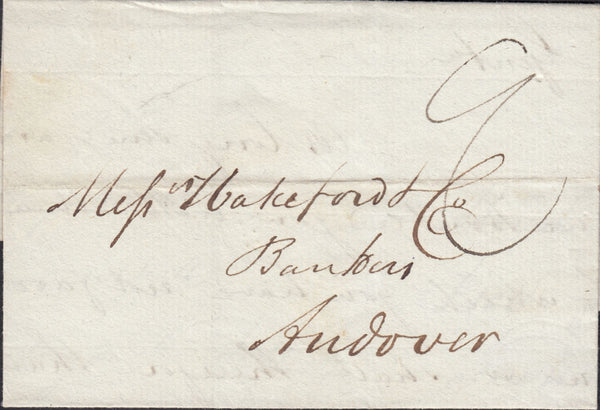 Messrs Wakeford & Co
Bankers
Andover